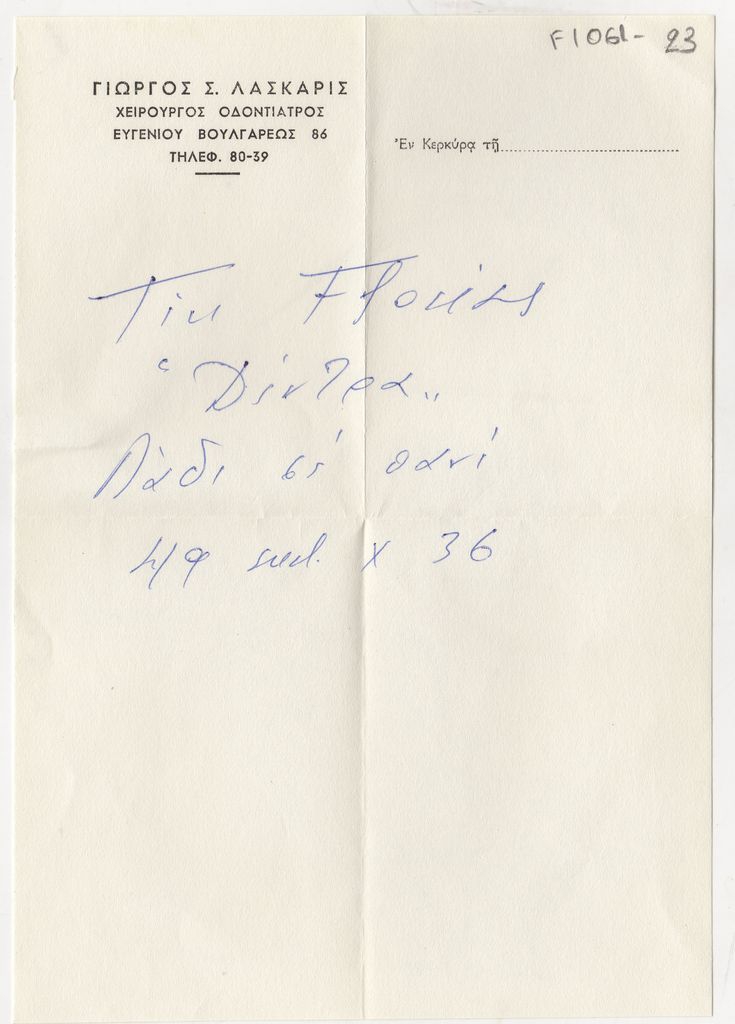 F1061- 23
ΓΙΩΡΓΟΣ Σ. ΛΑΣΚΑΡΙΣ
ΧΕΙΡΟΥΡΓΟΣ ΟΔΟΝΤΙΑΤΡΟΣ
ΕΥΓΕΝΙΟΥ ΒΟΥΛΓΑΡΕΩΣ 86
ΤΗΛΕΦ. 80-39
Ἐν Κερκύρᾳ τῇ
Τίμ
"Δέντρα"
Λάδι σέ πανί
49 x 36